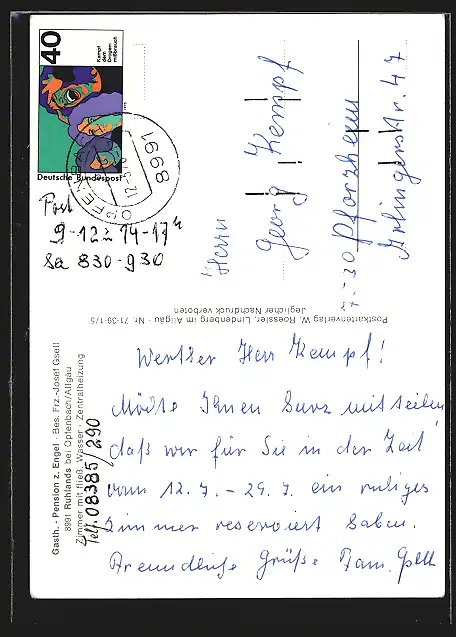 40
Kampf
dem
Drogen-
mißbrauch
Deutsche Bundespost
8991
OPFENB
Post
9-12 u 14-17 h
Sa 830-930
Herrn
Georg Kempf
7530 Pforzheim
Postkartenverlag W. Roessler, Lindenberg im Allgäu · Nr. 71-39-1/5
Jeglicher Nachdruck verboten
Gasth. - Pension z. Engel · Bes. Frz.-Josef Gsell
8991 Ruhlands bei Opfenbach/Allgäu
Zimmer mit fließ. Wasser · Zentralheizung
Telf. 08385/290
Werther Herr Kempf!
Möchte Ihnen kurz mitteilen
daß wir für Sie in der Zeit
vom 12.7. - 29.7. ein ruhiges
Zimmer reserviert haben.
Freundliche Grüße Fam. Gsell